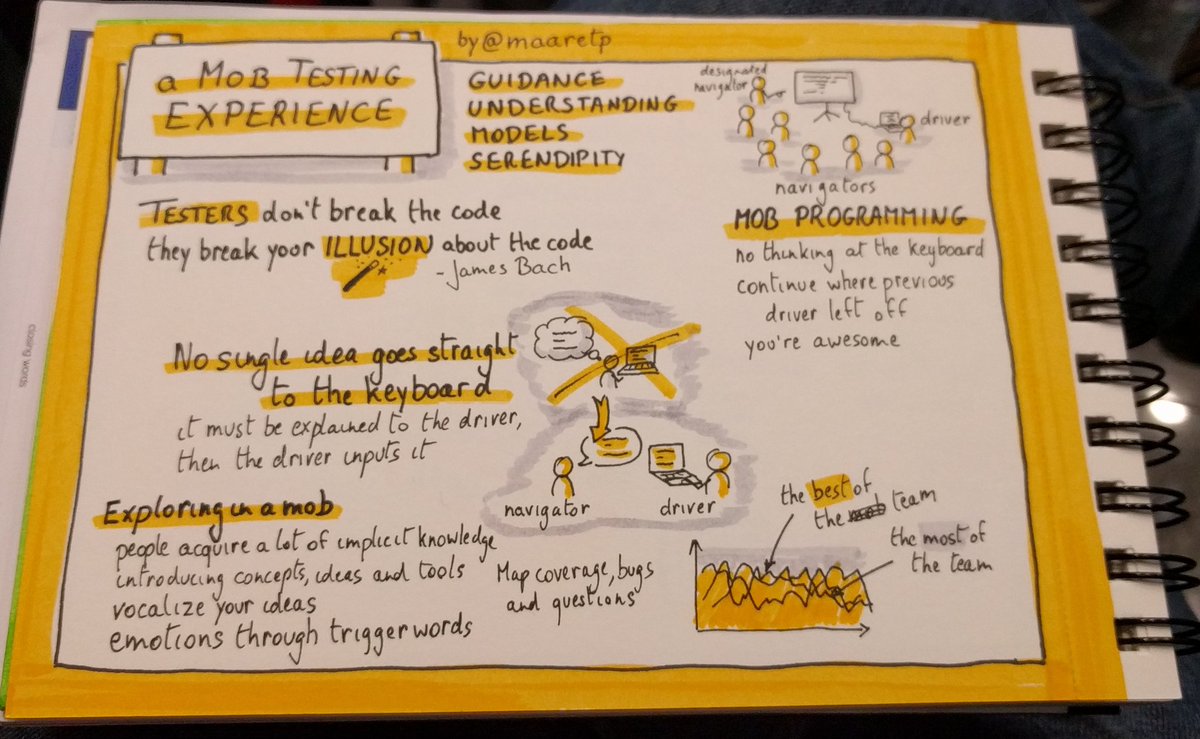 a MOB TESTING
EXPERIENCE
by @maaretp
GUIDANCE
UNDERSTANDING
MODELS
SERENDIPITY
designated
navigator
driver
navigators
MOB PROGRAMMING
no thinking at the keyboard
continue where previous
driver left off
you're awesome
TESTERS don't break the code
they break your ILLUSION about the code
- James Bach
No single idea goes straight
to the keyboard
it must be explained to the driver,
then the driver inputs it
navigator
driver
Exploring in a mob
people acquire a lot of implicit knowledge
introducing concepts, ideas and tools
vocalize your ideas
emotions through trigger words
Map coverage, bugs
and questions
the best of
the team
the most of
the team
closing words